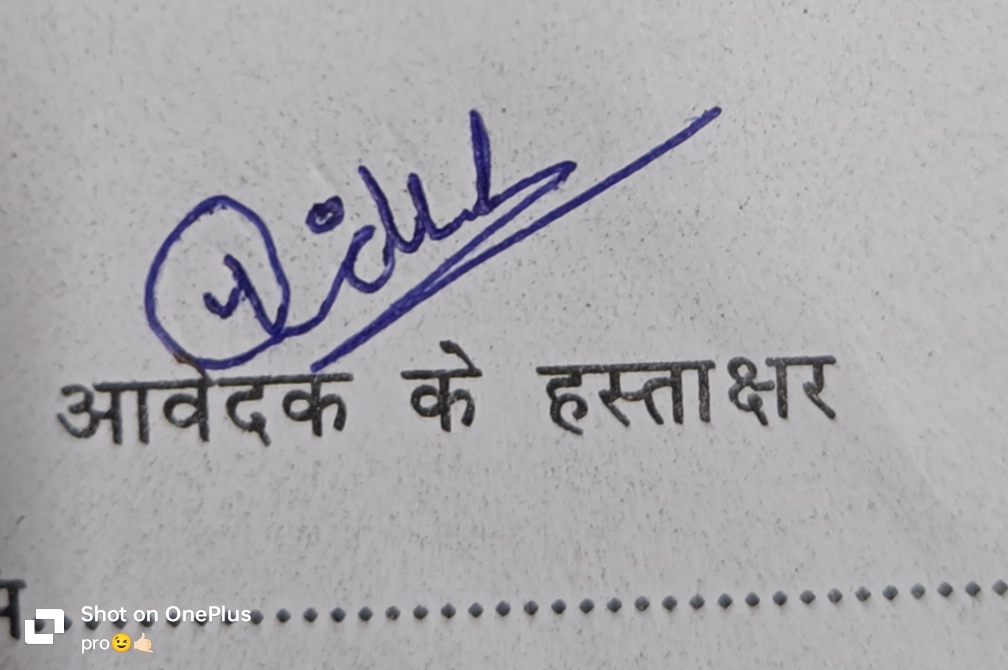 आवेदक के हस्ताक्षर
Shot on OnePlus
pro😉🤙🏻